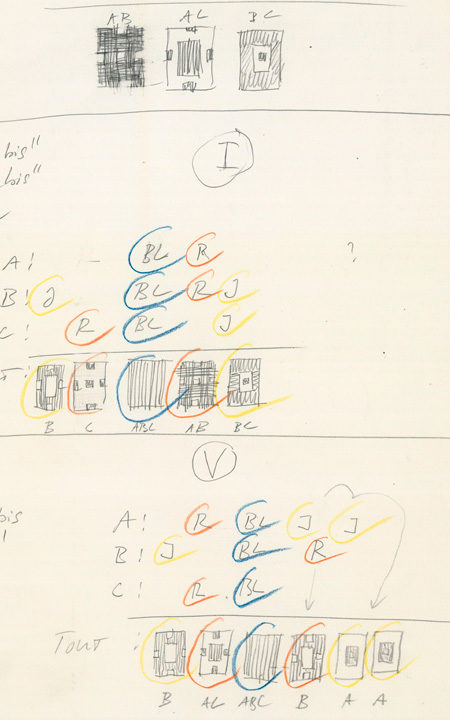 AB AC BC
bis"
bis"
I
A! BL R ?
B! J BL R J
C! R BL J
B C ABC AB BC
V
bis
A! R BL J J
B! J BL R
C! R BL
TOUT :
B AC ABC B A A